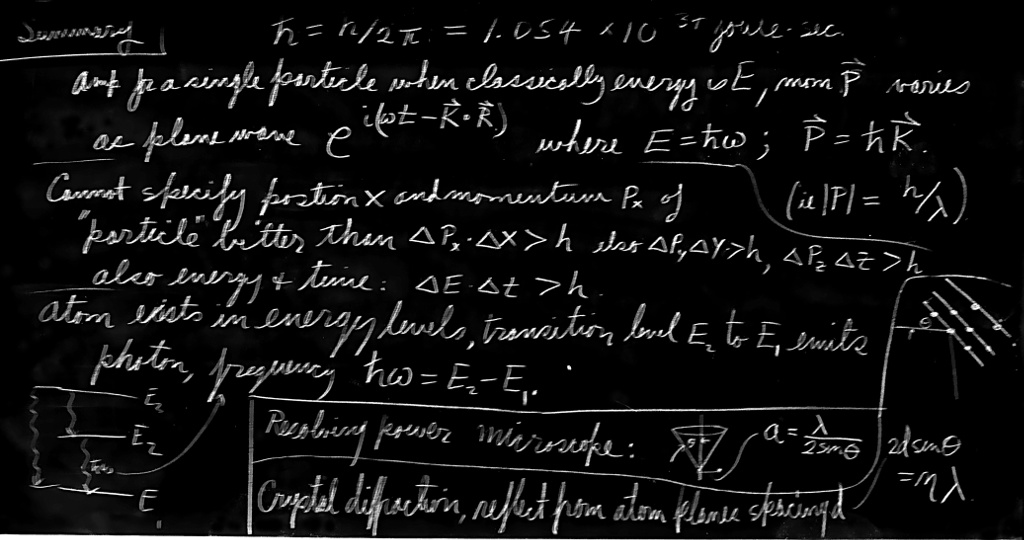 Summary
ħ = h/2π = 1.054 × 10 joule·sec.
Amp for a single particle when classically energy is E, mom P⃗ varies
as plane wave e^{i(ωt − K⃗·R⃗)} where E = ħω ; P⃗ = ħK⃗.
(ie |P| = h/λ)
Cannot specify postion x and momentum Pₓ of
"particle" better than ΔPₓ·ΔX > h also ΔPᵧΔY > h, ΔP_z ΔZ > h
also energy & time: ΔE·Δt > h.
atom exists in energy levels, transition level E₂ to E₁ emits
photon, frequency ħω = E₂ − E₁.
E₂
E₂
E₁
Resolving power microscope: a = λ/2sinθ
Crystal diffraction, reflect from atom planes spacing d
2d sinθ
= nλ